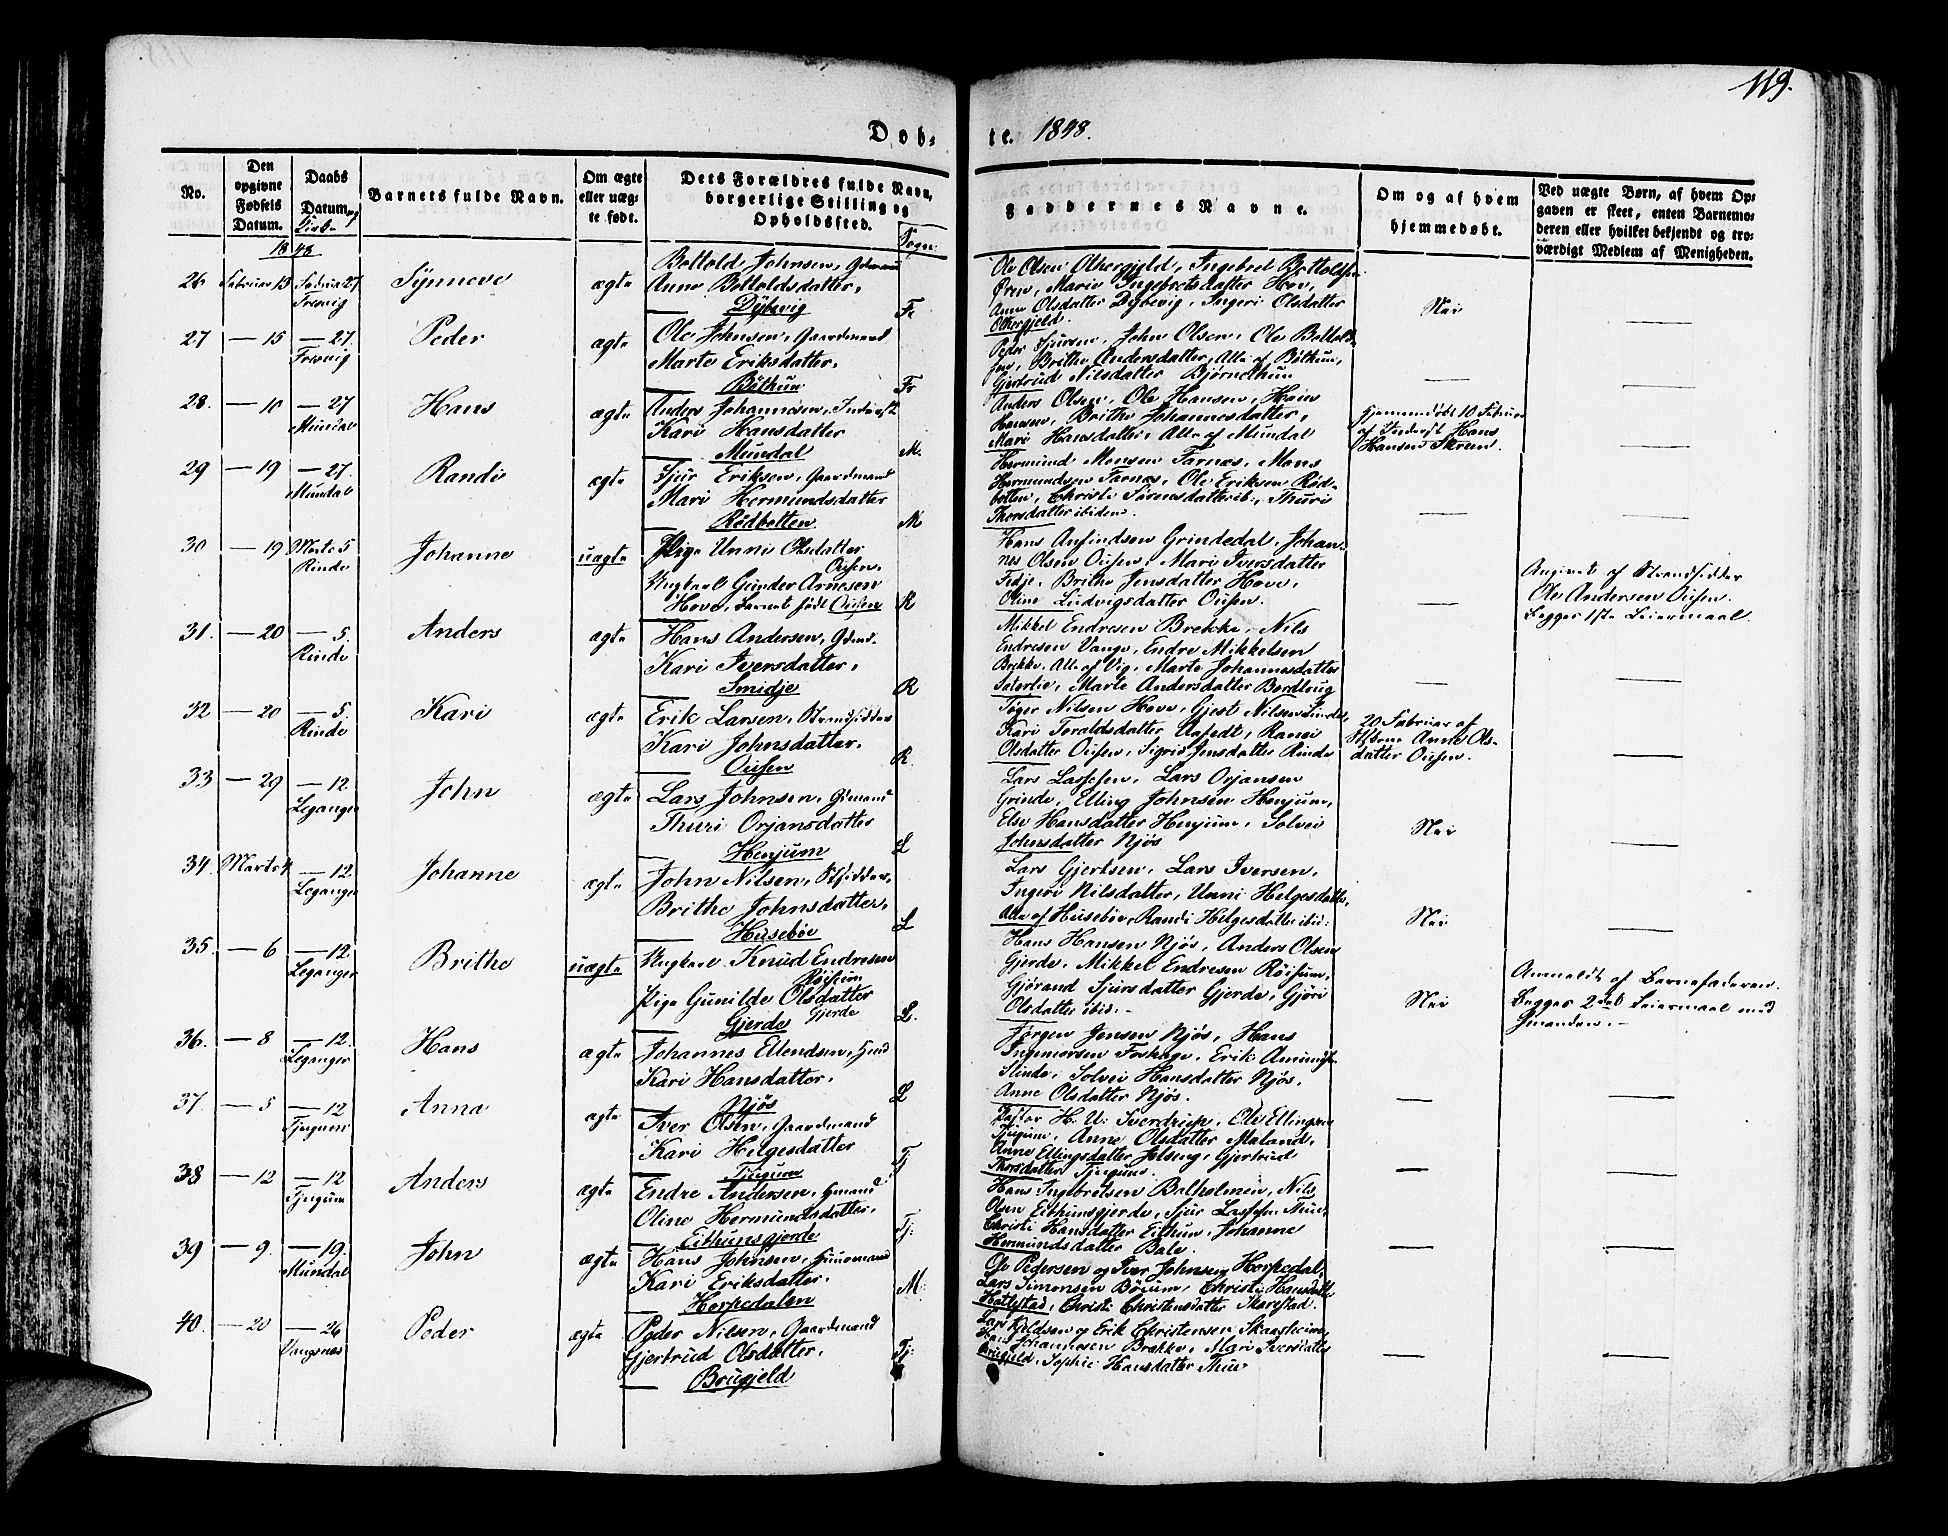 119.
Døb-
te. 1848.
No.
Den opgivne Fødsels Datum.
Daabs Datum og
Barnets fulde Navn.
Om ægte eller uægte født.
Dets Forældres fulde Navn, borgerlige Stilling og Opholdssted.
Sogn:
Faddernes Navne.
Om og af hvem hjemmedøbt.
Ved uægte Børn, af hvem Opgaven er skeet, enten Barnemoderen eller hvilket bekjendt og troværdigt Medlem af Menigheden.
1848
26 Februar 13 Februar 27 Synneve ægte
Bottold Johnsen,
Anne Bottoldsdatter,
Dybevig Fr
Ole Olsen Ottergjeld, Ingebret Bottoldsen
Øren, Marie Ingebretsdatter Hov,
Anne Olsdatter Dybevig, Ingeri Olsdatter
Ottergjeld.
Nei
27 — 15 — 27. Peder ægte
Ole Johnsen, Gaardmand
Marte Eriksdatter,
Bøthun Fr
Peder Sjursen, John Olsen, Ole Bottold-
sen, Brithe Andersdatter, Alle af Bøthun,
Gjertrud Nilsdatter Bjørnethun
28. — 10 — 27 Mundal Hans ægte
Anders Johannesen, Inderst
Kari Hansdatter
Mundal M.
Anders Olsen, Ole Hansen, Hans
Hansen, Brithe Johannesdatter,
Mari Hansdatter, Alle af Mundal
Hjemmedøbt 10 Februar
af Inderst Hans
Hansen Skreen.
29 — 19 — 27. Mundal Randi ægte
Sjur Eriksen, Gaardmand
Mari Hermundsdatter
Rødbotten M
Hermund Monsen Farnæs, Mons
Hermundsen Farnæs, Ole Eriksen Rød-
botten, Christi Simonsdatter ib:, Thuri
Thorsdatter ibidem.
30 — 19 Marts 5 Rinde Johanne uægte
Pige Unni Olsdatter
Ousen,
Ungkarl Gunder Arnesen
Hove, Barnet født Ousen R
Hans Anfindsen Grindedal, Johan-
nes Olsen Ousen, Mari Iversdatter
Fedje, Brithe Jensdatter Hove,
Oline Ludvigsdatter Ousen.
Angivet af Strandsidder
Ole Andersen Ousen.
Begges 1ste Leiermaal.
31. — 20 — 5. Rinde Anders ægte
Hans Andersen,
Kari Iversdatter,
Smidje R
Mikkel Endresen Brekke, Nils
Endresen Vange, Endre Mikkelsen
Brekke, Alle af Vig, Marte Johannesdatter
Sæterlie, Marte Andersdatter Bordloug
32 — 20 — 5. Rinde Kari ægte
Erik Larsen, Strandsidder
Kari Johnsdatter,
Ousen R.
Tøger Nilsen Hove, Gjest Nilsen Linde,
Kari Toraldsdatter Aafedt, Ranei
Olsdatter Ousen, Sigrid Jensdatter Rinde
20 Februar af
Anne Ols-
datter Ousen.
33 — 29 — 12. Leganger John ægte
Lars Johnsen, Gmand
Thuri Orjansdatter
Henjum L
Lars Lassesen, Lars Orjansen
Grinde, Elling Johnsen Henjum,
Else Hansdatter Henjum, Solvei
Johnsdatter Njøs
Nei
34. Marts 4 — 12. Leganger Johanne ægte
John Nilsen, Stsidder,
Brithe Johnsdatter,
Husebøe L
Lars Gjertsen, Lars Iversen,
Ingeri Nilsdatter, Unni Helgesdatter,
Alle af Husebøe, Randi Helgesdatter ibid:
Nei
35. — 6 — 12. Leganger Brithe uægte
Ungkarl Knud Endresen
Røisum
Pige Gunilde Olsdatter
Gjerde
Gjerde L.
Hans Hansen Njøs, Anders Olsen
Gjerde, Mikkel Endresen Røisum,
Gjørand Sjursdatter Gjerde, Gjøri
Olsdatter ibid.
Nei
Anmeldt af Barnefaderen.
Begges 2det Leiermaal med
hinanden.
36. — 8 — 12. Leganger Hans ægte
Johannes Ellendsen,
Kari Hansdatter,
Njøs L
Jørgen Jensen Njøs, Hans
Ingemorsen Foshage, Erik Amunds.
Slinde, Solvei Hansdatter Njøs,
Anne Olsdatter Njøs.
37. — 5 — 12 Tjugum Anna ægte
Iver Olsen, Gaardmand
Kari Helgesdatter
Tjugum Tj
Pastor H. U. Sverdrup, Ole Ellingsen
Tjugum, Anne Olsdatter Maland,
Anne Ellingsdatter Jelseng, Gjertrud
Thorsdatter Tjugum.
38 — 12 — 12 Tjugum Anders ægte
Endre Andersen, Hmand
Oline Hermundsdatter,
Eithunsgjerde Tj:
Hans Ingebretsen Balholmen, Nils
Olsen Eithunsgjerde, Sjur Lassesen Thue,
Christi Hansdatter Eithun, Johanne
Hermundsdatter Bale.
39 — 9. — 19. Mundal John ægte
Hans Johnsen, Huusmand
Kari Eriksdatter,
Horpedalen M:
Ole Pedersen og Iver Johnsen Horpedal,
Lars Simonsen Børum, Christi Hansdatter
Hatlestad, Christi Christensdatter Skarestad.
40. — 20 — 26 Vangsnæs Peder ægte
Peder Nilsen, Gaardmand
Gjertrud Olsdatter,
Brugjeld Tj:
Lars Kjeldsen og Erik Christensen Skaasheim,
Hans Johannesen Brække, Mari Iversdatter
Brugjeld, Sophie Hansdatter Thue